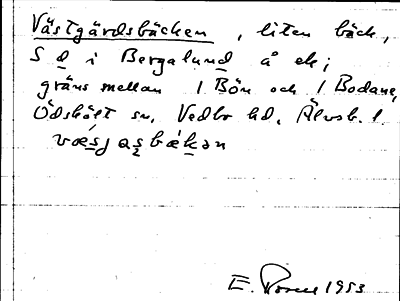 Västgärdsbäcken, liten bäck,
S d i Bergalund å ek;
gräns mellan 1 Bön och 1 Bodane,
Ödskölt sn, Vedbo hd, Älvsb. l
E. 1953